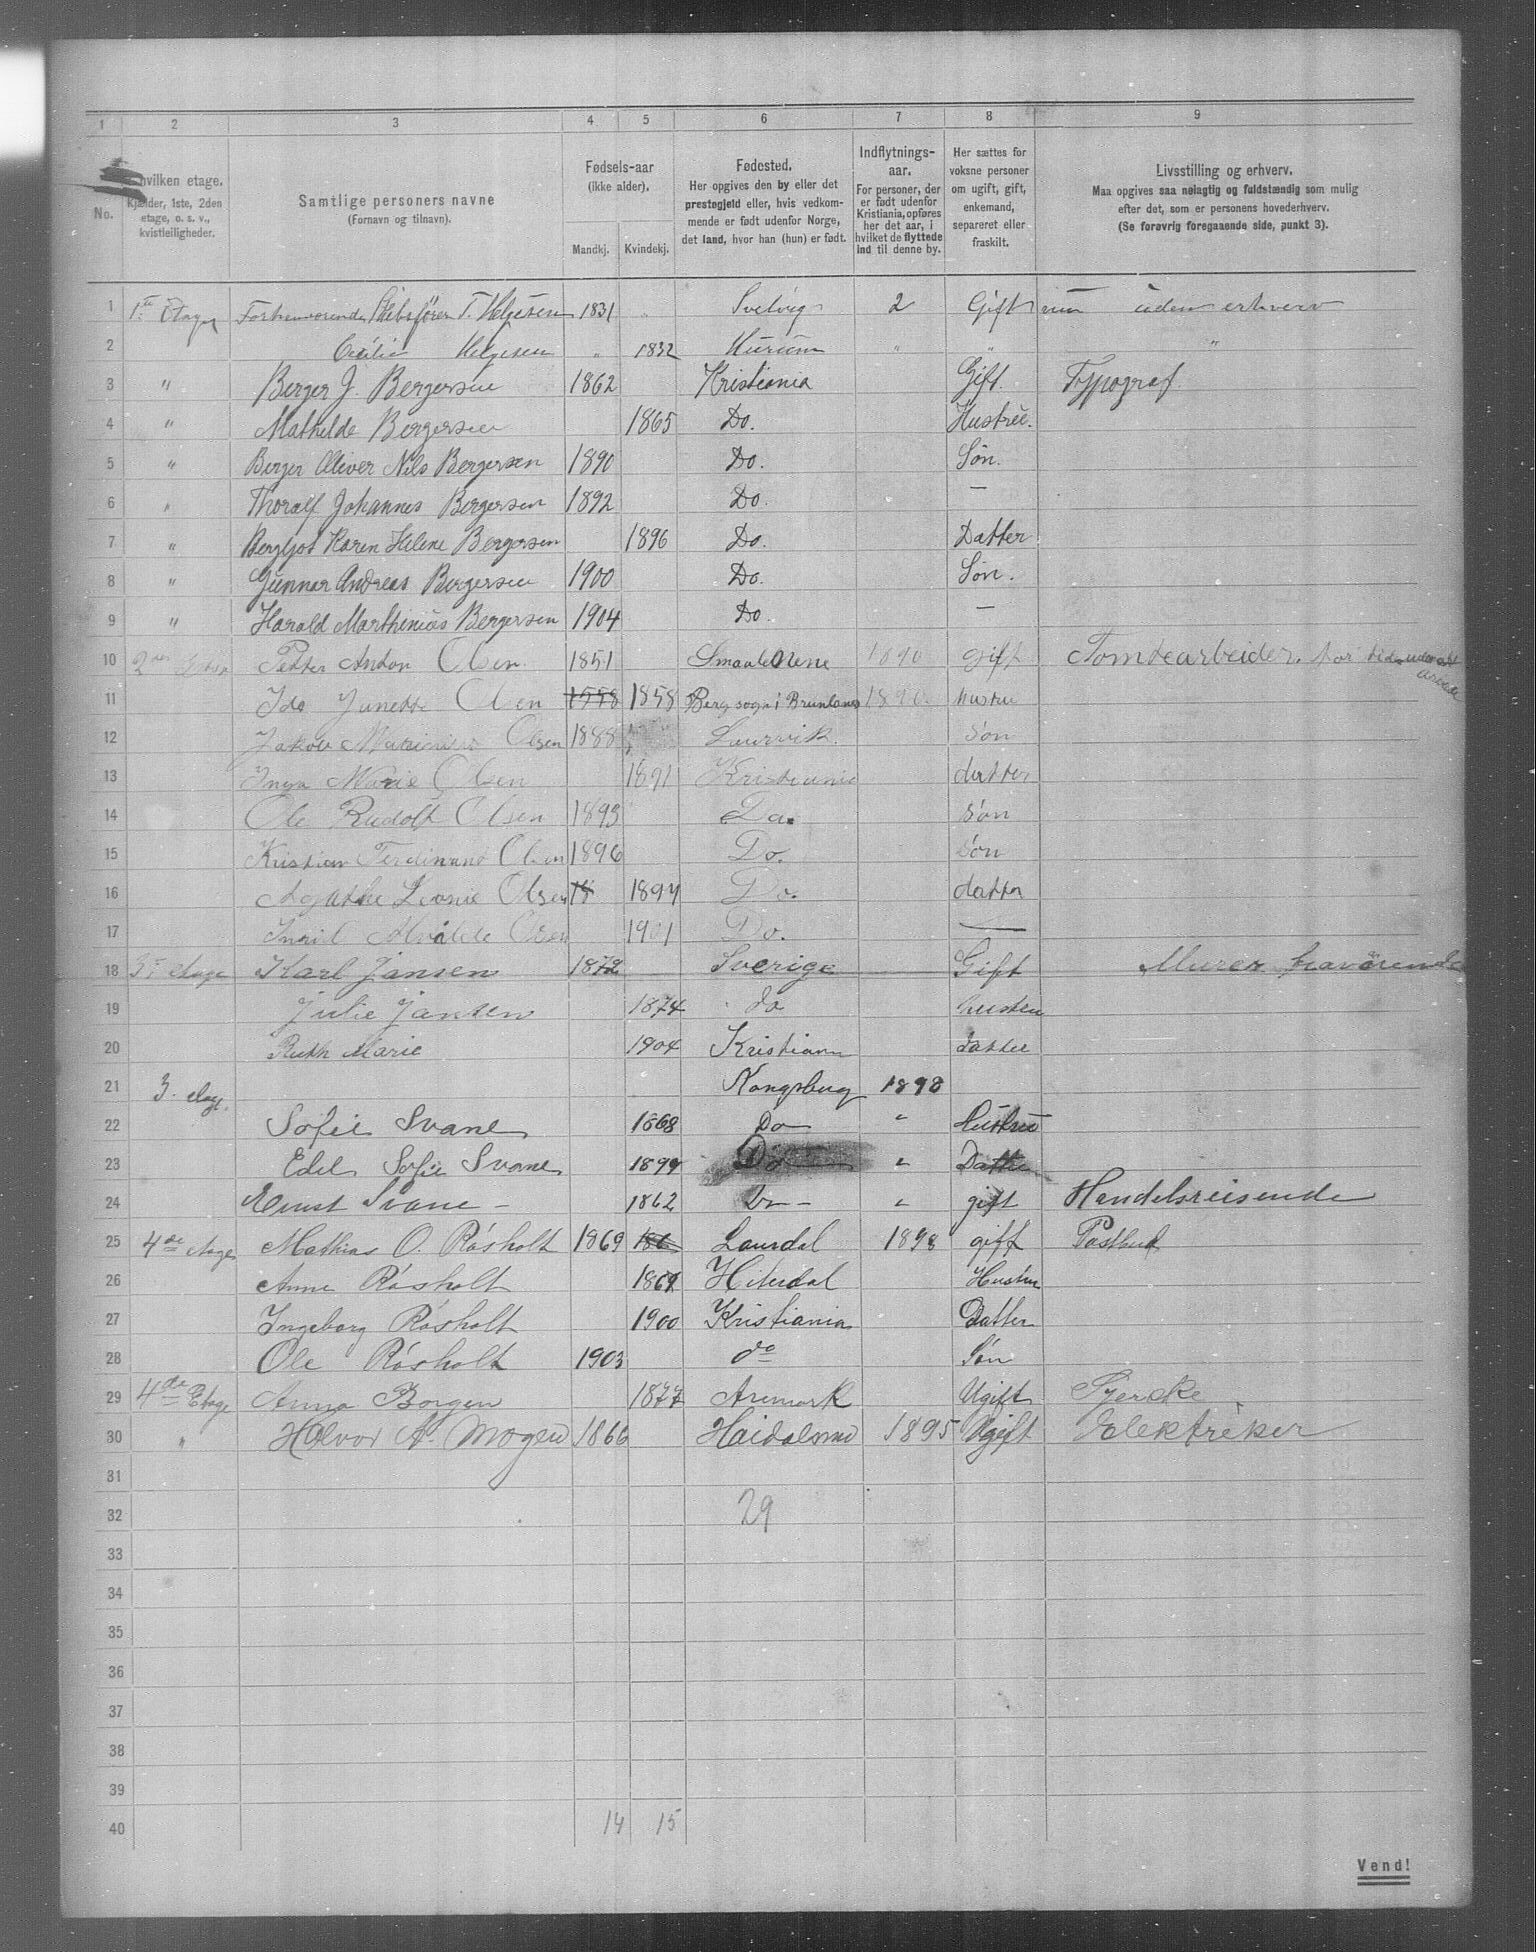 1 2 3 4 5 6 7 8 9
No.
hvilken etage.
Kjælder, 1ste, 2den
etage, o. s. v.,
kvistleiligheder.
Samtlige personers navne
(Fornavn og tilnavn).
Fødsels-aar
(ikke alder).
Mandkj. Kvindekj.
Fødested.
Her opgives den by eller det
prestegjeld eller, hvis vedkom-
mende er født udenfor Norge,
det land, hvor han (hun) er født.
Indflytnings-
aar.
For personer, der
er født udenfor
Kristiania, opføres
her det aar, i
hvilket de flyttede
ind til denne by.
Her sættes for
voksne personer
om ugift, gift,
enkemand,
separeret eller
fraskilt.
Livsstilling og erhverv.
Maa opgives saa nøiagtig og fuldstændig som mulig
efter det, som er personens hovederhverv.
(Se forøvrig foregaaende side, punkt 3).
1 1te Etage Forhenværende Skibsfører T. Helgesen 1831 " Svelvig 2 Gift uden erhverv
2 Cecilie Helgesen " 1832 Hurum " " "
3 " Berger J. Bergersen 1862 Kristiania Gift. Typograf
4 " Mathilde Bergersen 1865 Do. Hustru.
5 " Berger Oliver Nils Bergersen 1890 Do. Søn.
6 " Thoralf Johannes Bergersen 1892 Do. —
7 " Bergljot Karen Helene Bergersen 1896 Do. Datter
8 " Gunnar Andreas Bergersen 1900 Do. Søn.
9 " Harald Marthinius Bergersen 1904 Do. —
10 2den Etage Petter Anton Olsen 1851 Smaalenene 1890 gift Tomtearbeider. for tiden uden
arbeide
11 Ida Janette Olsen 1558 1858 Berg sogn i Brunlanes 1890 Hustru
12 Jakob Marinius Olsen 1888 Laurvik Søn
13 Inga Marie Olsen 1891 Kristiania datter
14 Ole Rudolf Olsen 1893 Do. Søn
15 Kristian Ferdinand Olsen 1896 Do. Søn
16 Agathe Leonie Olsen 18 1897 Do. datter
17 Olsen 1901 Do. —
18 3die etage Karl Jansen 1872 Sverige Gift Murer
19 Julie Jansen 1874 do hustru
20 Ruth Marie 1904 Kristiania datter
21 3. etage. Kongsberg 1898
22 Sofie Svane 1868 Do " Hustru
23 Edel Sofie Svane 1899 Do " Datter
24 Ernst Svane - 1862 Do - " gift Handelsreisende
25 4de etage Mathias O. Røsholt 1869 186 Laurdal 1898 gift Postbud
26 Anne Røsholt 1869 Hiterdal Hustru
27 Ingeborg Røsholt 1900 Kristiania Datter
28 Ole Røsholt 1903 do Søn
29 4de Etage Anna Borgen 1877 Aremark Ugift Syerske
30 " Halvor A. Mogen 1866 Heidalsmo 1895 Ugift Elektriker
31
32 29
33
34
35
36
37
38
39
40 14 15
Vend!